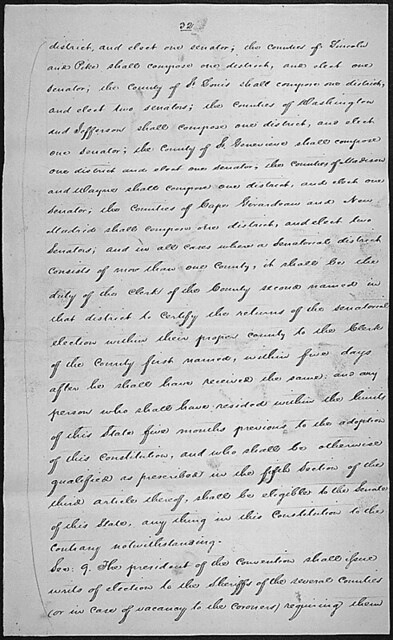 32
district, and elect one senator; the counties of Lincoln
and Pike shall compose one district, and elect one
senator; the county of St Louis shall compose one district,
and elect two senators; the counties of Washington
and Jefferson shall compose one district, and elect
one senator; the county of St. Genevieve shall compose
one district and elect one senator, the counties of Madison
and Wayne shall compose one district, and elect one
senator; the counties of Cape Girardeau and New
Madrid shall compose one district, and elect two
Senators; and in all cases where a Senatorial district
consists of more than one County, it shall be the
duty of the Clerk of the County second named in
that district to certify the returns of the senatorial
election within their proper county to the Clerk
of the County first named, within five days
after he shall have received the same: and any
person who shall have resided within the limits
of this State five months previous to the adoption
of this constitution, and who shall be otherwise
qualified as prescribed in the fifth Section of the
third article thereof, shall be eligible to the Senate
of this State, any thing in this Constitution to the
contrary notwithstanding.
Sec: 9. The president of the Convention shall issue
writs of election to the sheriffs of the several Counties
(or in case of vacancy to the coroners) requiring them